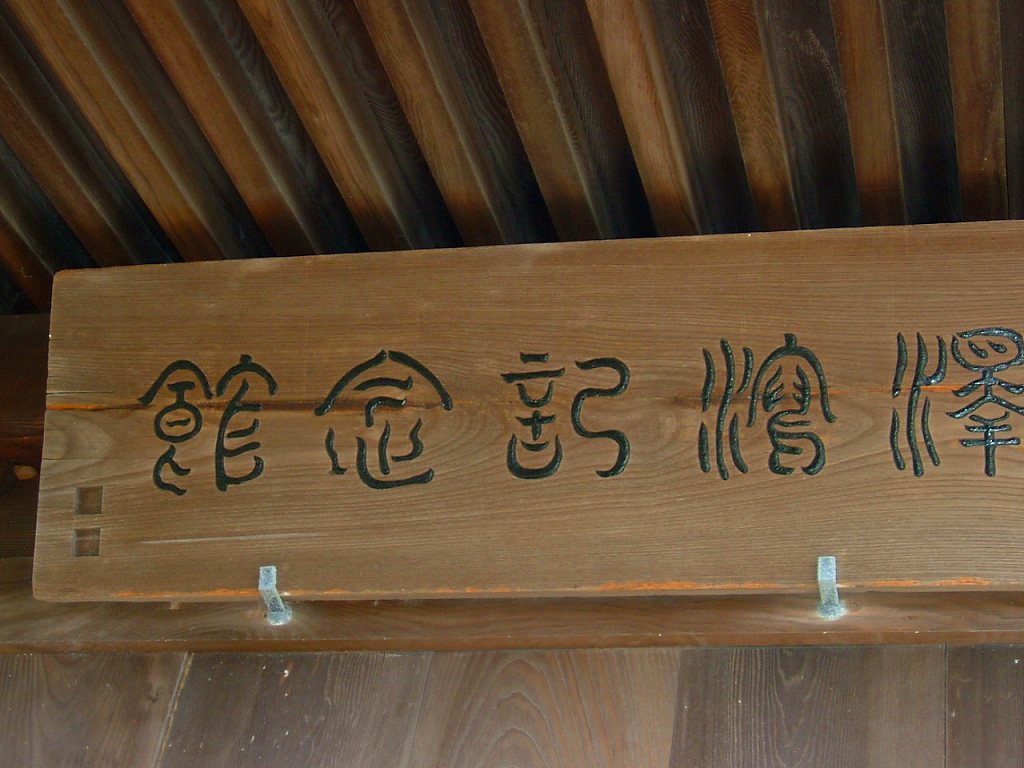 澤瀉記念館